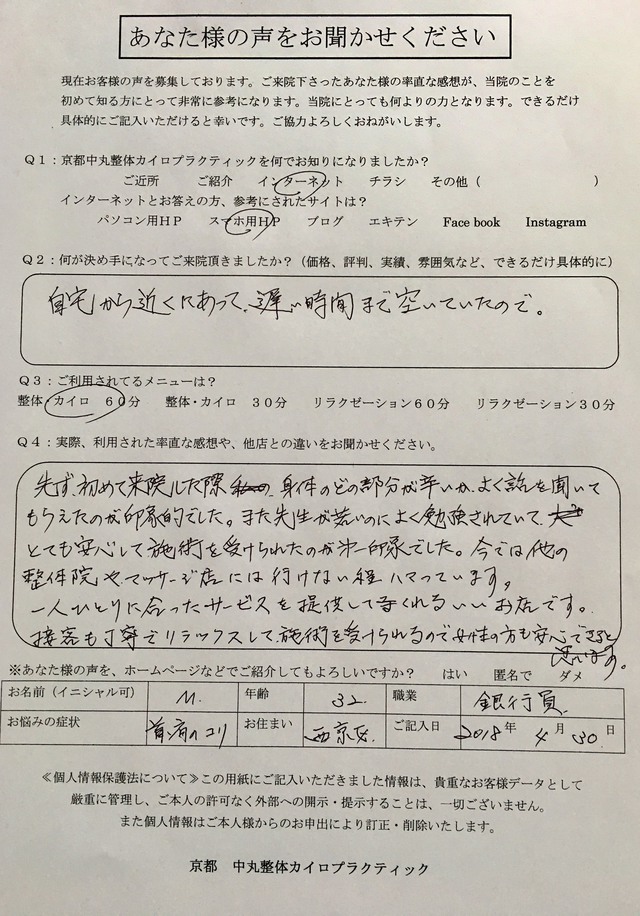 あなた様の声をお聞かせください
現在お客様の声を募集しております。ご来院下さったあなた様の率直な感想が、当院のことを
初めて知る方にとって非常に参考になります。当院にとっても何よりの力となります。できるだけ
具体的にご記入いただけると幸いです。ご協力よろしくおねがいします。
Q1：京都中丸整体カイロプラクティックを何でお知りになりましたか？
ご近所 ご紹介 インターネット チラシ その他（ ）
インターネットとお答えの方、参考にされたサイトは？
パソコン用HP スマホ用HP ブログ エキテン Face book Instagram
Q2：何が決め手になってご来院頂きましたか？（価格、評判、実績、雰囲気など、できるだけ具体的に）
自宅から近くにあって、遅い時間まで空いていたので。
Q3：ご利用されてるメニューは？
整体・カイロ 60分 整体・カイロ 30分 リラクゼーション60分 リラクゼーション30分
Q4：実際、利用された率直な感想や、他店との違いをお聞かせください。
先ず、初めて来院した際 身体のどの部分が辛いか、よく話を聞いて
もらえたのが印象的でした。また先生が若いのによく勉強されていて、
とても安心して施術を受けられたのが第一印象でした。今では他の
整体院やマッサージ店には行けない程ハマっています。
一人ひとりに合ったサービスを提供してくれるいいお店です。
接客も丁寧でリラックスして施術を受けられるので女性の方も安心できると
思います。
※あなた様の声を、ホームページなどでご紹介してもよろしいですか？ はい 匿名で ダメ
お名前（イニシャル可） M. 年齢 32 職業 銀行員
お悩みの症状 首、肩のコリ お住まい 西京区 ご記入日 2018年 4月 30日
≪個人情報保護法について≫この用紙にご記入いただきました情報は、貴重なお客様データとして
厳重に管理し、ご本人の許可なく外部への開示・提示することは、一切ございません。
また個人情報はご本人様からのお申出により訂正・削除いたします。
京都 中丸整体カイロプラクティック